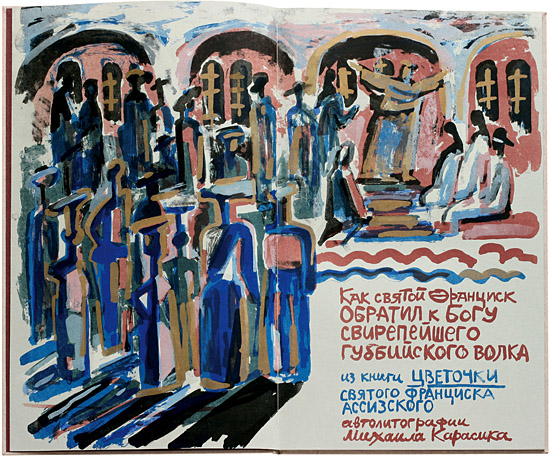 Как святой Франциск
обратил к Богу
свирепейшего
губбийского волка
из книги Цветочки
святого Франциска
Ассизского
автолитографии
Михаила Карасика